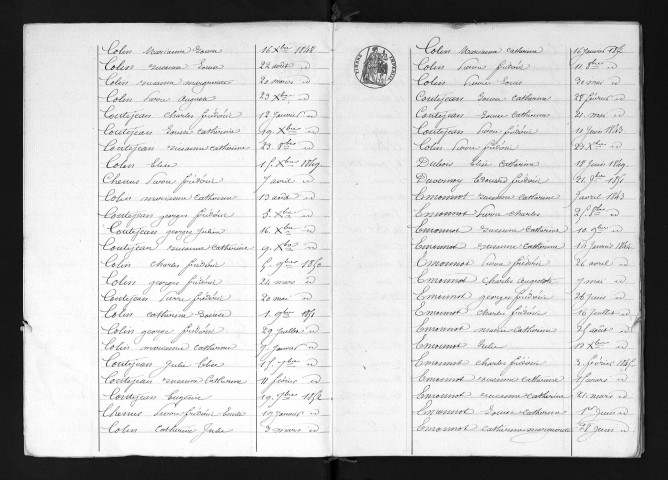 Colin Marianne Louise 16 Xbre 1848
Colin Suzanne Louise 22 août id
Colin Suzanne Marguerite 20 mars id
Colin Pierre Auguste 23 Xbre id
Coulejean Charles frédéric 12 Janvier id
Coulejean Louise Catherine 19 Xbre id
Coulejean Suzanne Catherine 23 8bre id
Colin Elise 15 Xbre 1849
Chenus Pierre frédéric 7 avril id
Colin Marianne Catherine 13 août id
Coulejean georges frédéric 5 Xbre id
Coulejean georges Julien 16 Xbre id
Coulejean Suzanne Catherine 9 Xbre id
Colin Charles frédéric 5 9bre 1850
Colin georges frédéric 24 mars id
Coulejean Pierre frédéric 20 mai id
Colin Catherine Louise 1 9bre 1851
Colin george frédéric 29 Juillet id
Colin Marianne Catherine 7 Janvier id
Coulejean Julie Elise 15 7bre id
Coulejean Suzanne Catherine 11 février id
Coulejean Eugénie 19 7bre 1852
Chenus Pierre frédéric Emile 19 Janvier id
Colin Catherine Julie 3 mars id
Colin Marianne Catherine 16 Janvier
Colin Pierre frédéric 11 8bre id
Colin Pierre Louis 31 mai id
Coulejean Louise Catherine 28 février id
Coulejean Louise Catherine 21 mai id
Coulejean Pierre frédéric 11 Juin 1853
Colin Pierre frédéric 23 Xbre id
Dubois Elise Catherine 18 Juin 1849
Duvernoy Edouard frédéric 21 9bre
Emonnot Suzanne Catherine 9 avril 1843
Emonnot Pierre Charles 25 8bre id
Emonnot Suzanne Catherine 10 9bre id
Emonnot Suzanne Catherine 16 Janvier 1844
Emonnot Pierre frédéric 26 avril id
Emonnot Charles Auguste 7 mai id
Emonnot georges frédéric 26 Juin id
Emonnot Charles frédéric 16 Juillet id
Emonnot Marie Catherine 25 août id
Emonnot Julie 12 Xbre id
Emonnot Charles frédéric 3 février 1845
Emonnot Suzanne Catherine 15 mars id
Emonnot Suzanne Catherine 21 mars id
Emonnot Louise Catherine 1er Juin id
Emonnot Catherine Marguerite 28 Juin id